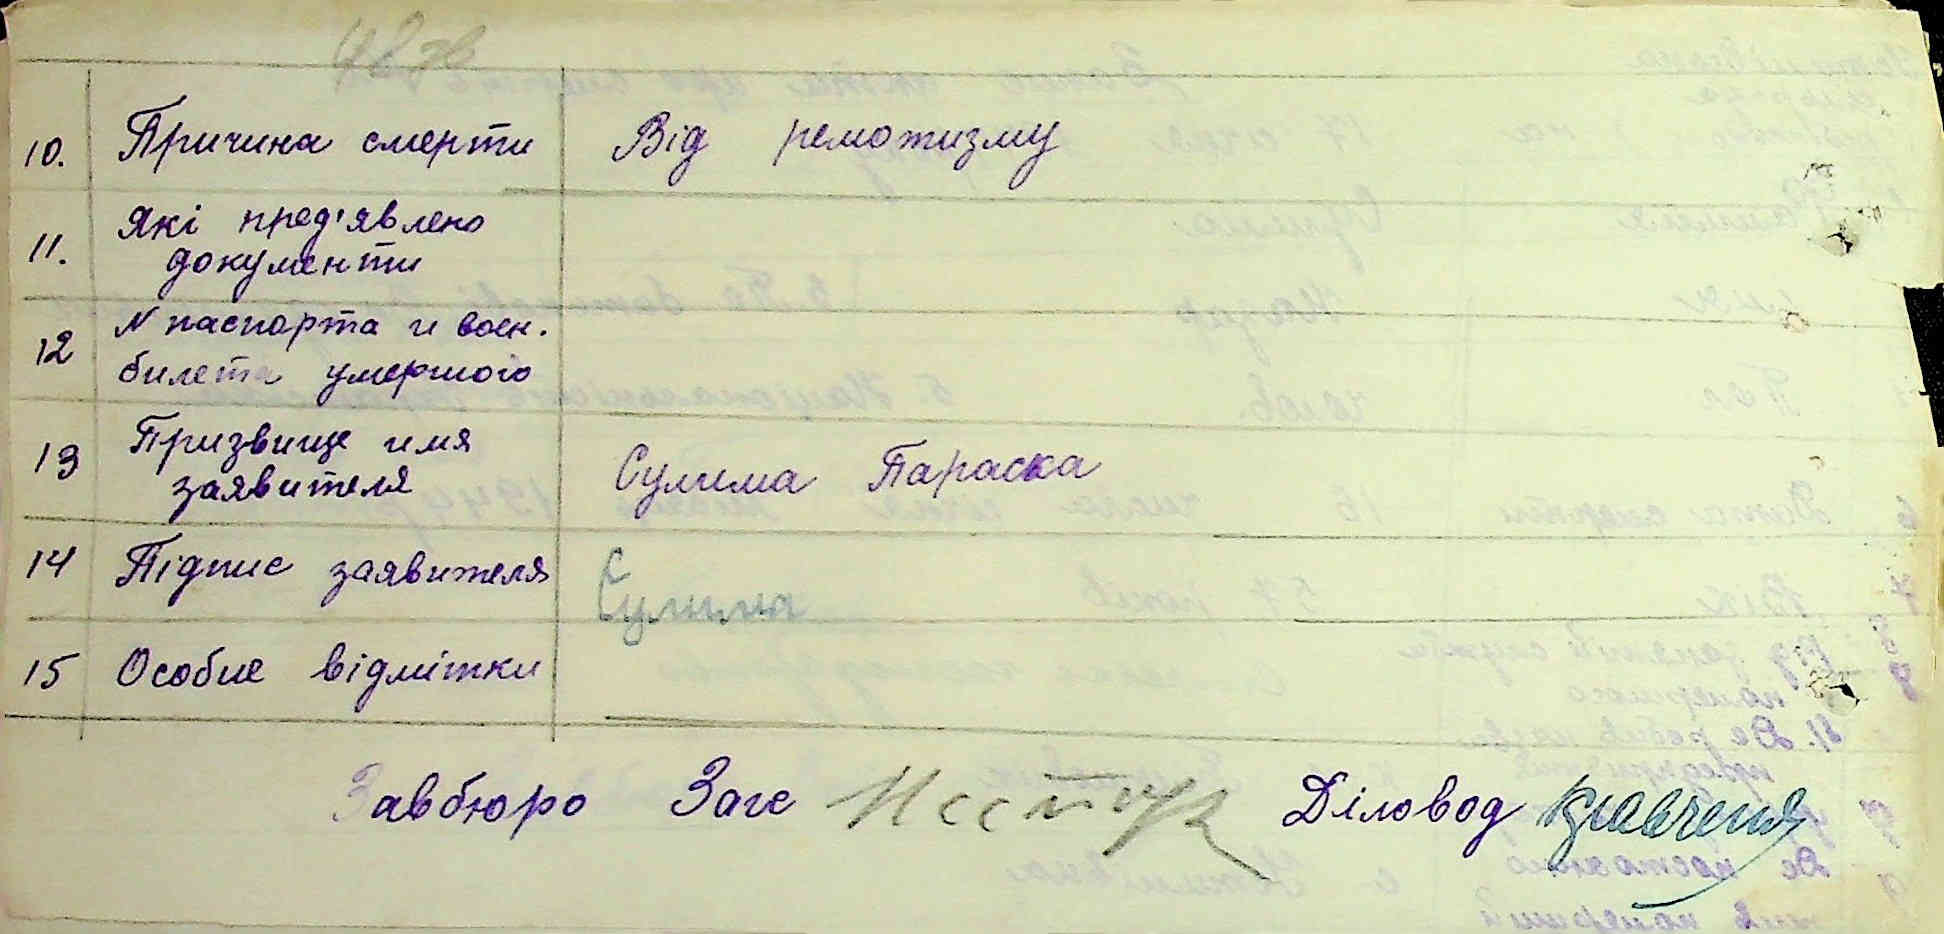 48 зв
10. Причина смерти Від ремотизму
11. Які пред'явлено
документи
12 N паспорта и воен.
билета умершого
13 Призвище имя
заявителя Сулима Параска
14 Підпис заявителя Сулима
15 Особие відмітки
Завбюро Загс Діловод